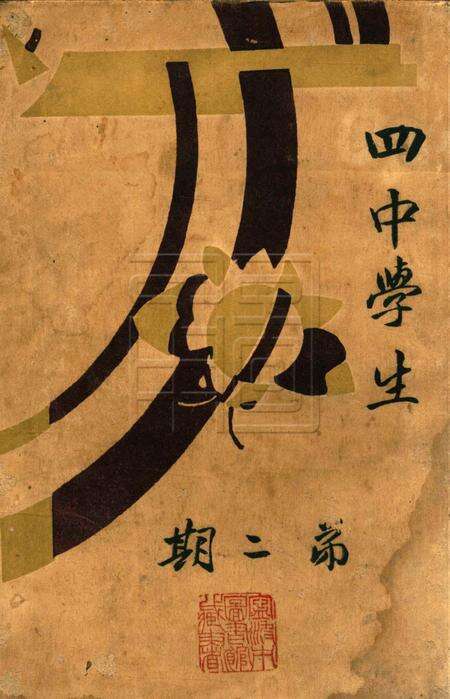 四中學生
第二期